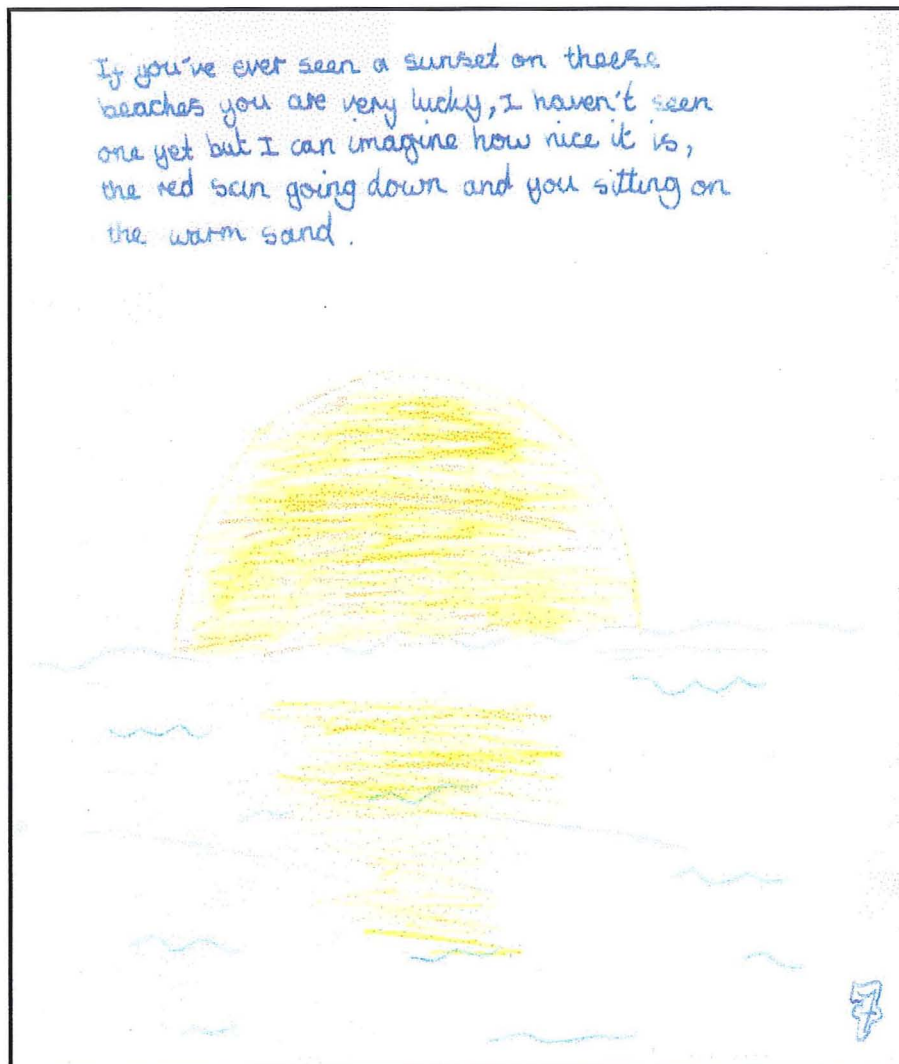 If you've ever seen a sunset on theese
beaches you are very lucky, I haven't seen
one yet but I can imagine how nice it is,
the red sun going down and you sitting on
the warm sand.
7